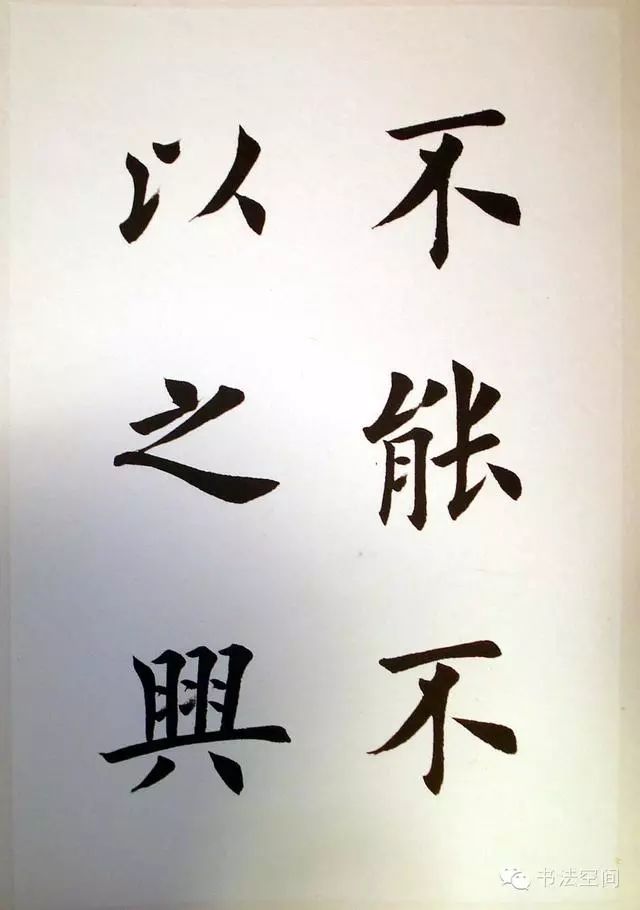 不能不
以之興
书法空间